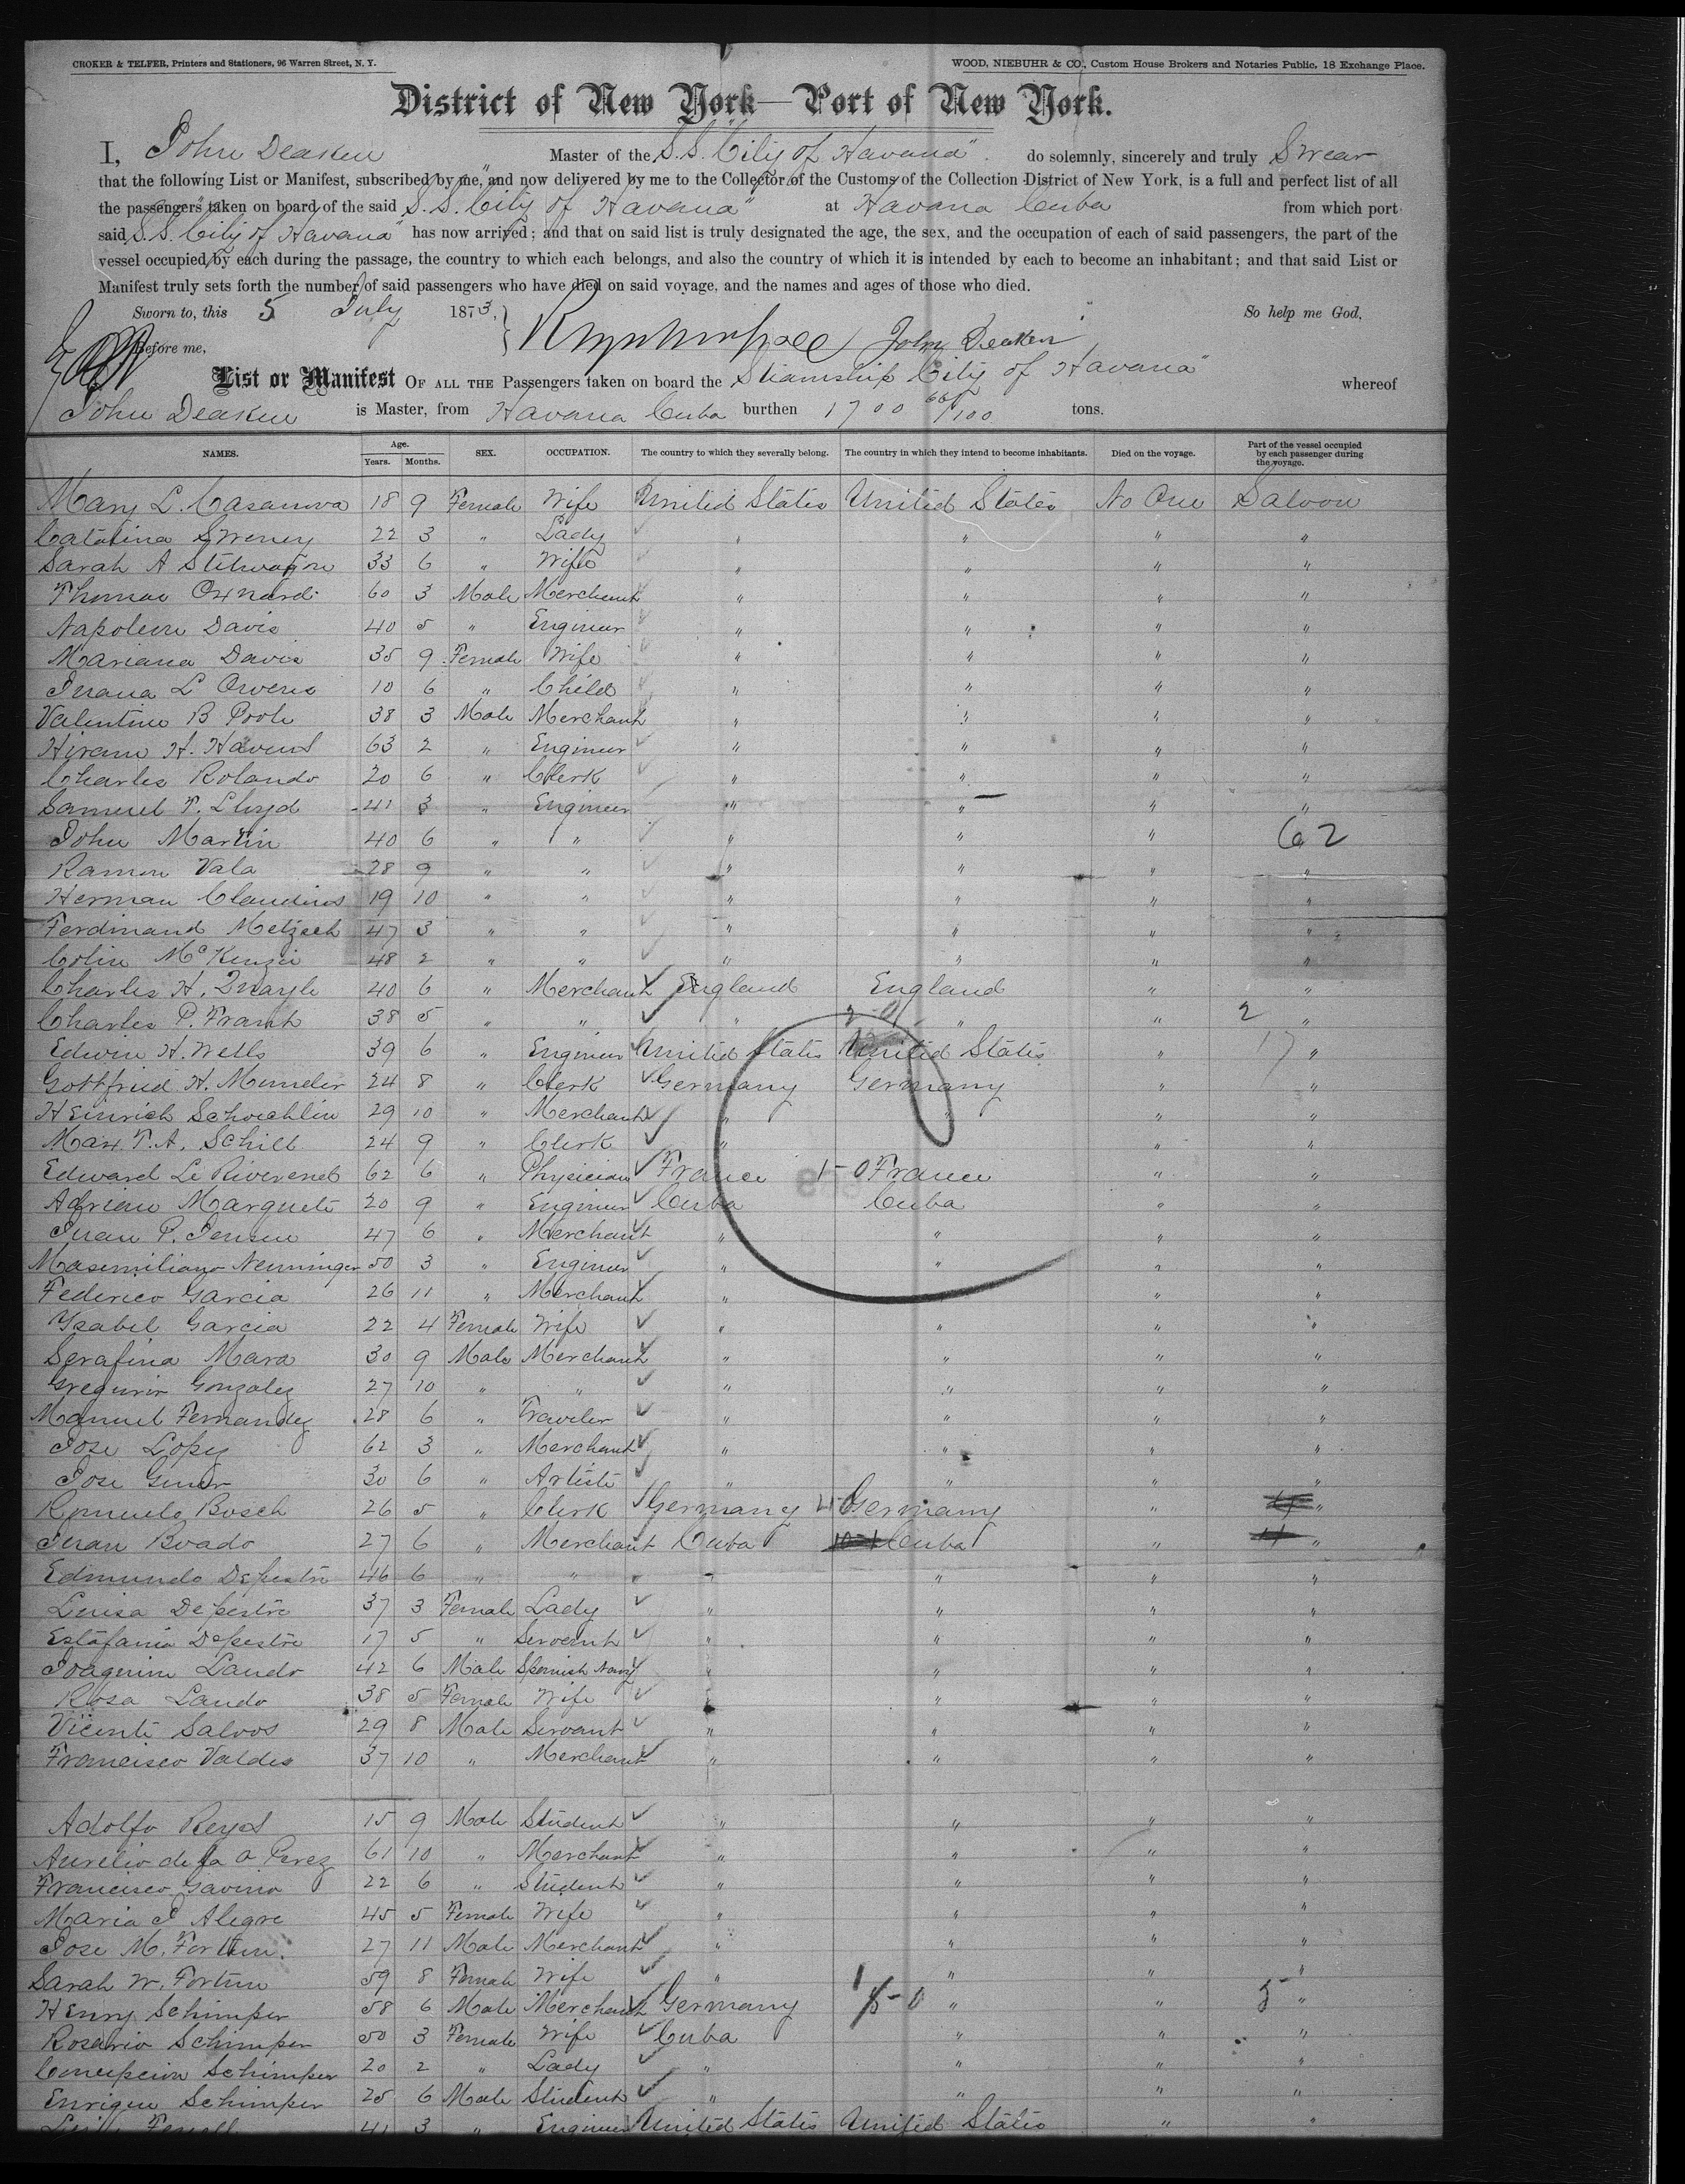 CROKER & TELFER, Printers and Stationers, 96 Warren Street, N. Y. WOOD, NIEBUHR & CO., Custom House Brokers and Notaries Public, 18 Exchange Place.
District of New York—Port of New York.
I, John Deaken Master of the S.S. "City of Havana" do solemnly, sincerely and truly Swear
that the following List or Manifest, subscribed by me, and now delivered by me to the Collector of the Customs of the Collection District of New York, is a full and perfect list of all
the passengers taken on board of the said S.S. "City of Havana" at Havana Cuba from which port
said S.S. "City of Havana" has now arrived; and that on said list is truly designated the age, the sex, and the occupation of each of said passengers, the part of the
vessel occupied by each during the passage, the country to which each belongs, and also the country of which it is intended by each to become an inhabitant; and that said List or
Manifest truly sets forth the number of said passengers who have died on said voyage, and the names and ages of those who died.
Sworn to, this 5 July 1873. So help me God,
Before me, John Deaken
List or Manifest OF ALL THE Passengers taken on board the Steamship City of Havana" whereof
John Deaken is Master, from Havana Cuba burthen 1700 /100 tons.
NAMES. Age. Years. Months. SEX. OCCUPATION. The country to which they severally belong. The country in which they intend to become inhabitants. Died on the voyage. Part of the vessel occupied by each passenger during the voyage.
Mary L. Casanova 18 9 Female Wife United States United States No One Saloon
Catalina Sweney 22 3 " Lady " " " "
Sarah A 33 6 " Wife " " " "
Thomas Oxnard 60 3 Male Merchant " " " "
Napoleon Davis 40 5 " Engineer " " " "
Mariana Davis 35 9 Female Wife " " " "
Juana L Owens 10 6 " Child " " " "
Valentine B Poole 38 3 Male Merchant " " " "
Hiram H. Havens 63 2 " Engineer " " " "
Charles Rolando 20 6 " Clerk " " " "
Samuel T. Lloyd 41 3 " Engineer " " " "
John Martin 40 6 " " " " " 62
Ramon Vala 28 9 " " " " " "
Herman Claudius 19 10 " " " " " "
Ferdinand 47 3 " " " " " "
Colin McKenzie 48 2 " " " " " "
Charles H. Quayle 40 6 " Merchant England England " "
Charles P. Frank 38 5 " " " 2-0 " " 2 "
Edwin H. Wells 39 6 " Engineer United States United States " 17 "
Gottfried H. Munder 24 8 " Clerk Germany Germany " "
Heinrich Schoechlin 29 10 " Merchant " " " "
Max T. A. Schill 24 9 " Clerk " " "
Edward Le Riverend 62 6 " Physician France 1-0 France " "
Adrean Marquete 20 9 " Engineer Cuba Cuba " "
Juan P. Jensen 47 6 " Merchant " " " "
Masemiliano Nenninger 50 3 " Engineer " " " "
Federico Garcia 26 11 " Merchant " " "
Ysabel Garcia 22 4 Female Wife " " " "
Serafina Mara 30 9 Male Merchant " " " "
Gregorio Gonzalez 27 10 " " " " " "
Manuel Fernandez 28 6 " Traveler " " " "
Jose Lopez 62 3 " Merchant " " " "
Jose Giner 30 6 " Artiste " " " "
Romulo Bosch 26 5 " Clerk Germany Germany " "
Juan Boado 27 6 " Merchant Cuba Cuba " "
Edmundo Depestre 46 6 " " " " " "
Luisa Depestre 37 3 Female Lady " " " "
Estafania Depestre 17 5 " Servant " " " "
Joaquim Lando 42 6 Male Spanish Navy " " " "
Rosa Lando 38 5 Female Wife " " " "
Vicente Salvos 29 8 Male Servant " " " "
Francisco Valdes 37 10 " Merchant " " " "
Adolfo Reyes 15 9 Male Student " " " "
Aurelio de la O Perez 61 10 " Merchant " " " "
Francisco Gavino 22 6 " Student " " " "
Maria J Alegre 45 5 Female Wife " " " "
Jose M. Fortun 27 11 Male Merchant " " " "
Sarah W. Fortun 59 8 Female Wife " " " "
Henry Schimper 58 6 Male Merchant Germany " " 5 "
Rosario Schimper 50 3 Female Wife Cuba " " "
Concepcion Schimper 20 2 " Lady " " " "
Enrique Schimper 25 6 Male Student " " " "
41 3 " Engineer United States United States " "